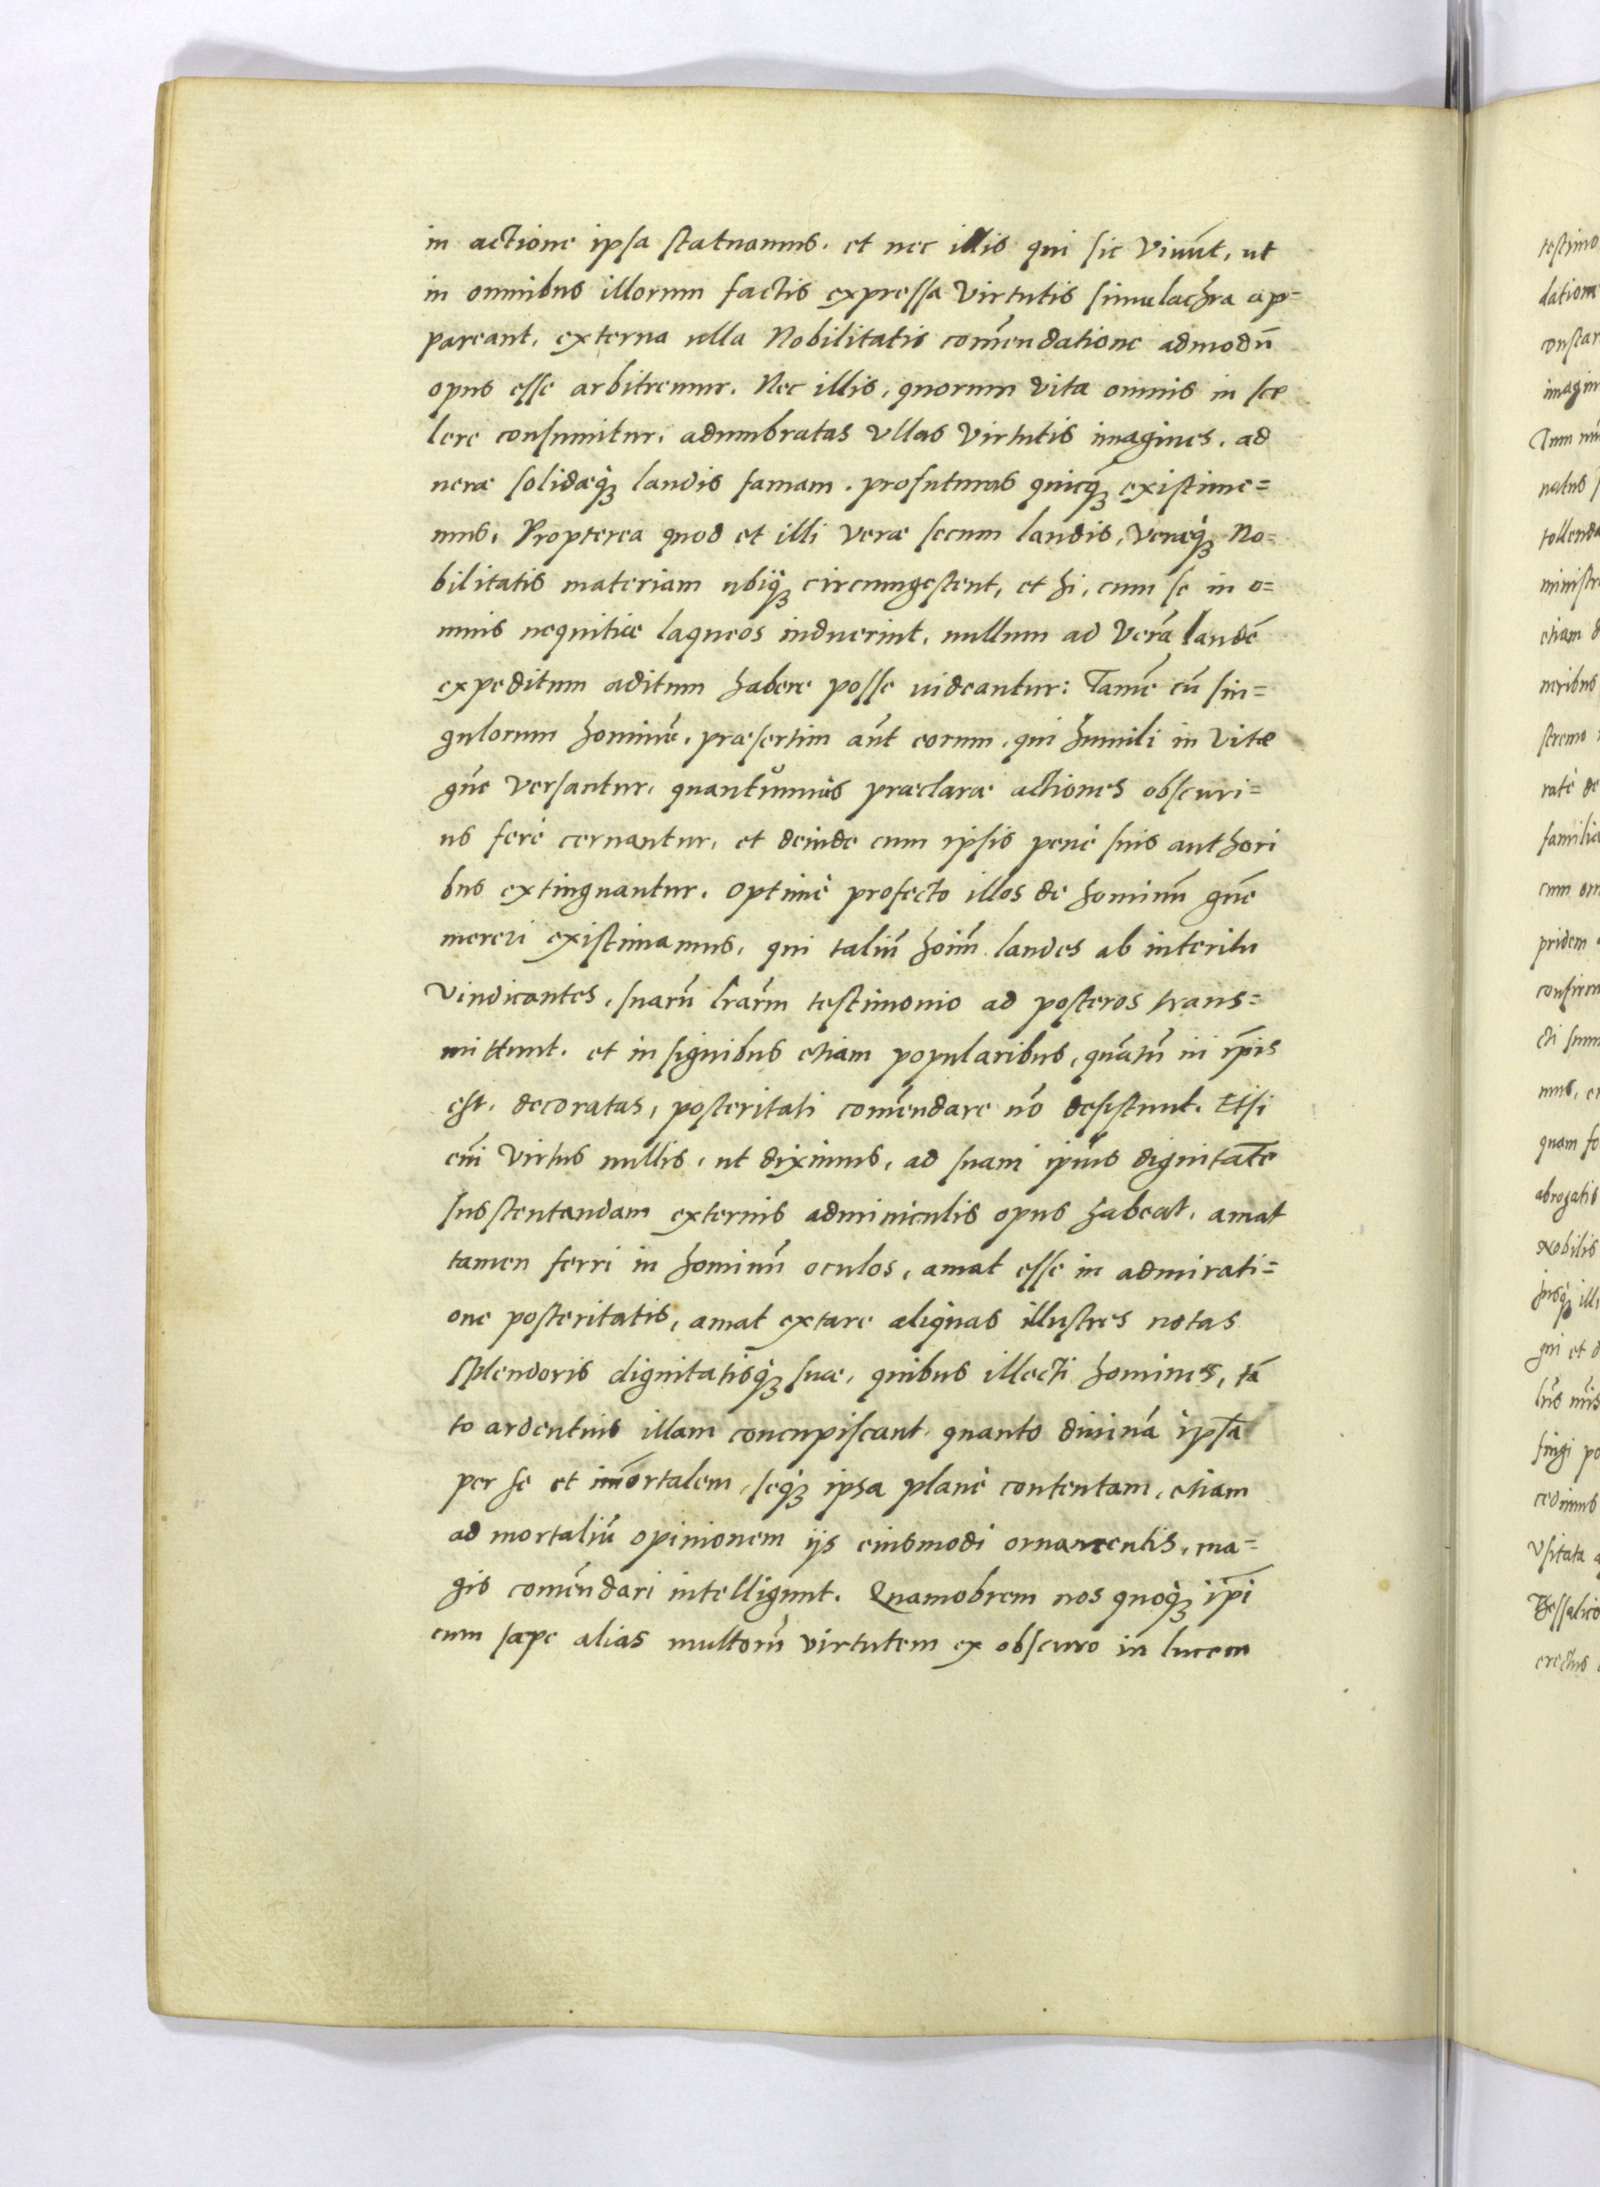 in actione ipsa statuamus. et nec illis qui sic viuūt, ut
in omnibus illorum factis expressa virtutis simulachra ap=
pareant, externa ulla Nobilitatis com̄endatione admodū
opus esse arbitremur. Nec illis, quorum vita omnis in sce
lere consumitur, adumbratas vllas virtutis imagines, ad
uerae solidaeq́ꝫ laudis famam. profuturas quicq́ꝫ existime=
mus, Propterea quod et illi verae secum laudis, veraeq́ꝫ No=
bilitatis materiam ubiq́ꝫ circumgestent, et hi, cum se in o=
mnis nequitiae laqueos induerint, nullum ad verā laudē
expeditum aditum habere posse uideantur: Tamē cū sin=
gulorum hominū, praesertim aūt eorum, qui humili in vitae
gn̄e versantur, quantumuis praeclarae actiones obscuri=
us ferè cernantur, et deinde cum ipsis penè suis authori
bus extinguantur. Optimè profecto illos de hominū gn̄e
mereri existimamus, qui taliū hoīm laudes ab interitu
vindicantes, suarū l̄rarm testimonio ad posteros trans=
mittunt. et insignibus etiam popularibus, quātū in ip̄is
est, decoratas, posteritati com̄endare nō desistunt. Etsi
em̄ virtus nullis, ut diximus, ad suam ip̄ius dignitatē
sustentandam externis adminiculis opus habeat, amat
tamen ferri in hominū oculos, amat esse in admirati=
one posteritatis, amat extare aliquas illustres notas
splendoris dignitatisq́ꝫ suae, quibus illecti homines, tā
to ardentius illam concupiscant, quanto diuinā ipsā
per se et im̄ortalem, seq́ꝫ ipsa planè contentam, etiam
ad mortaliū opinionem ijs eiusmodi ornamentis, ma=
gis com̄endari intelligunt. Quamobrem nos quoq́ꝫ ip̄i
cum saepe alias multorū virtutem ex obscuro in lucem